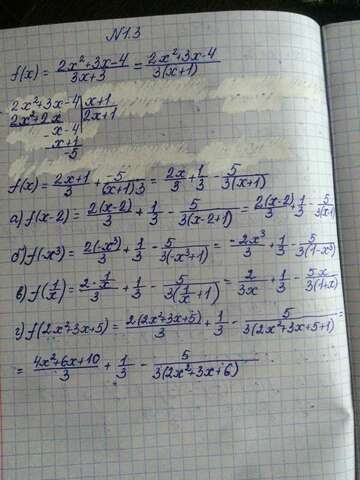 N1.3
f(x) = (2x²+3x-4)/(3x+3) = (2x²+3x-4)/(3(x+1))
2x²+3x-4 | x+1
2x²+2x | 2x+1
x-4
x+1
-5
f(x) = (2x+1)/3 + (-5)/((x+1)3) = 2x/3 + 1/3 - 5/(3(x+1))
а) f(x-2) = 2(x-2)/3 + 1/3 - 5/(3(x-2+1)) = 2(x-2)/3 + 1/3 - 5/(3(x-1
б) f(x³) = 2(-x³)/3 + 1/3 - 5/(3(-x³+1)) = -2x³/3 + 1/3 - 5/(3(1-x³)
в) f(1/x) = (2·1/x)/3 + 1/3 - 5/(3(1/x+1)) = 2/(3x) + 1/3 - 5x/(3(1+x)
г) f(2x²+3x+5) = 2(2x²+3x+5)/3 + 1/3 - 5/(3(2x²+3x+5+1)) =
= (4x²+6x+10)/3 + 1/3 - 5/(3(2x²+3x+6)